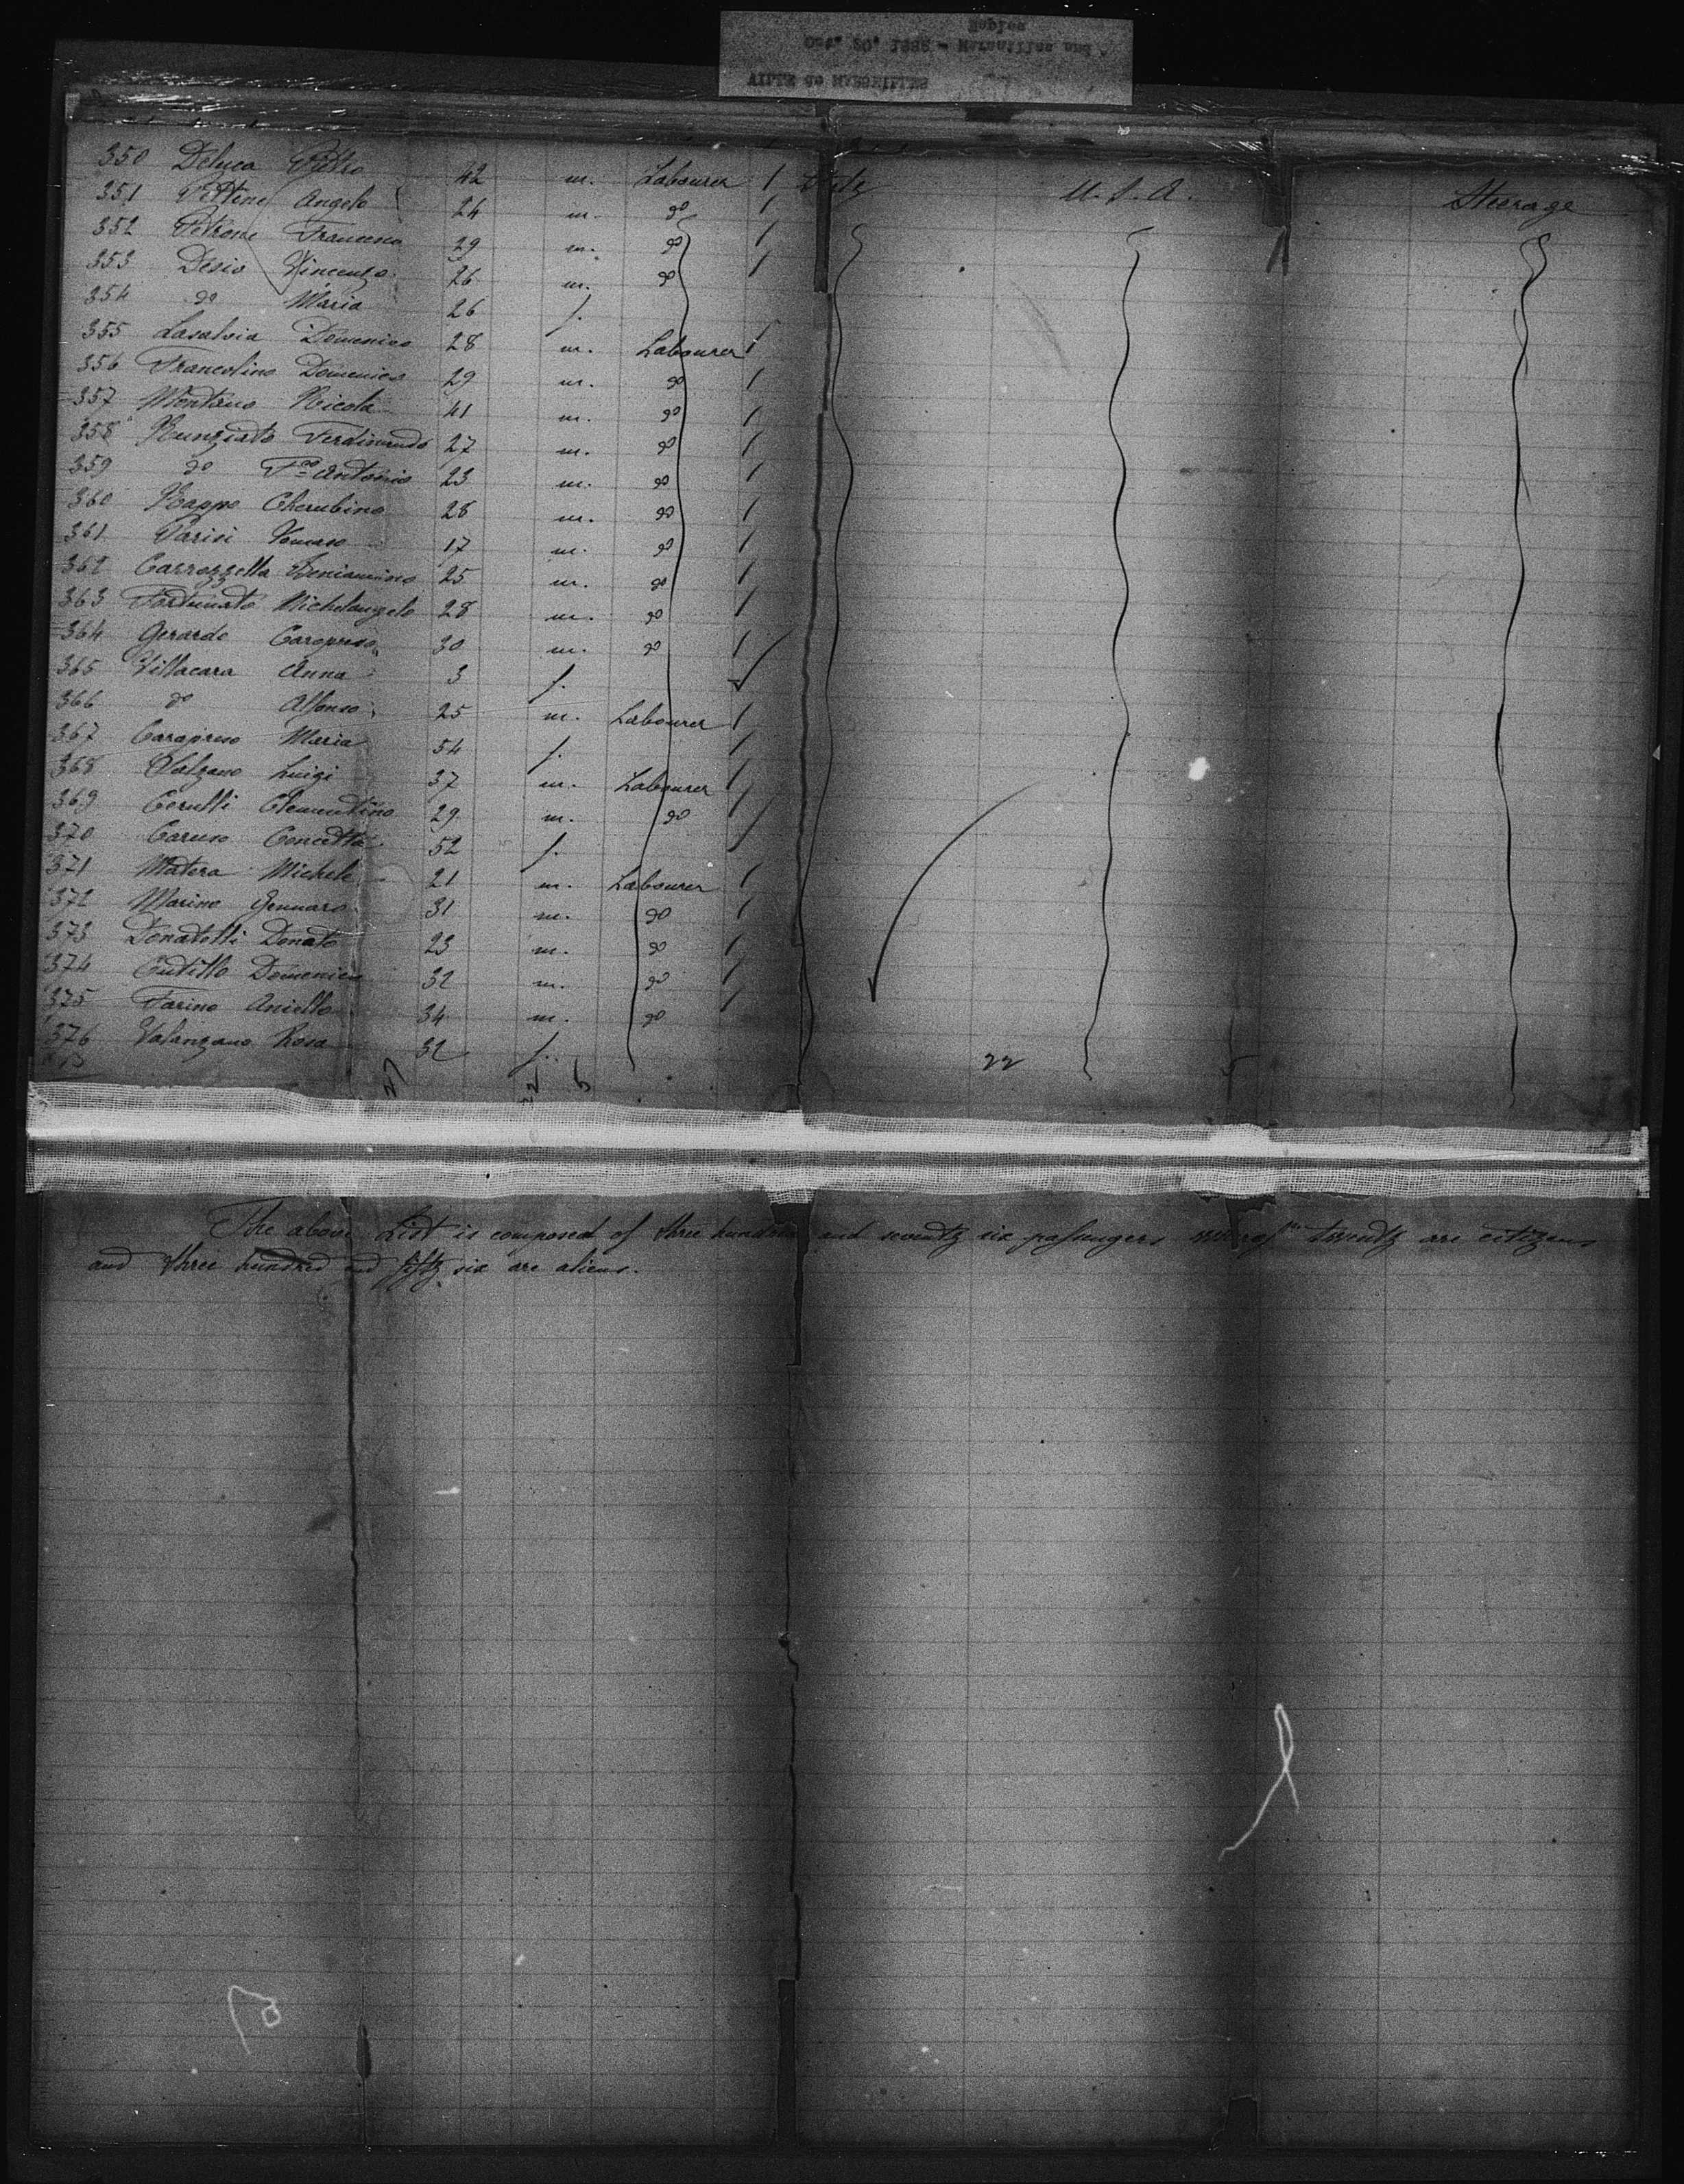 VILLE de MARSEILLES
Oct. 20, 1888 - Marseilles and
Naples
350 Deluca Pietro 42 m. Labourer / Italy U.S.A. Steerage
351 Angelo 24 m. do /
352 Petrone Francesco 29 m. do /
353 Desio Vincenzo 26 m. do /
354 do Maria 26 f.
355 Lasalvia Domenico 28 m. Labourer /
356 Francolino Domenico 29 m. do /
357 Montano Nicola 41 m. do /
358 Nunziato Ferdinando 27 m. do /
359 do Fco Antonio 23 m. do /
360 Cherubino 28 m. do /
361 Parisi 17 m. do /
362 Carrozzella Beniamino 25 m. do /
363 Fortunato Michelangelo 28 m. do /
364 Gerardo Caropreso 30 m. do /
365 Villacara Anna 3 f.
366 do Alfonso 25 m. Labourer /
367 Carapreso Maria 54 f. /
368 Luigi 37 m. Labourer /
369 Cerulli Clementino 29 m. do /
370 Caruso Concetta 52 f. /
371 Matera Michele 21 m. Labourer /
372 Marino Gennaro 31 m. do /
373 Donatelli Donato 23 m. do /
374 Cutillo Domenico 32 m. do /
375 Farino Aniello 34 m. do /
376 Valanzano Rosa 32 f.
27 22 5 22 5
The above List is composed of three hundred and seventy six passengers twenty are citizens
and three hundred and fifty six are aliens.